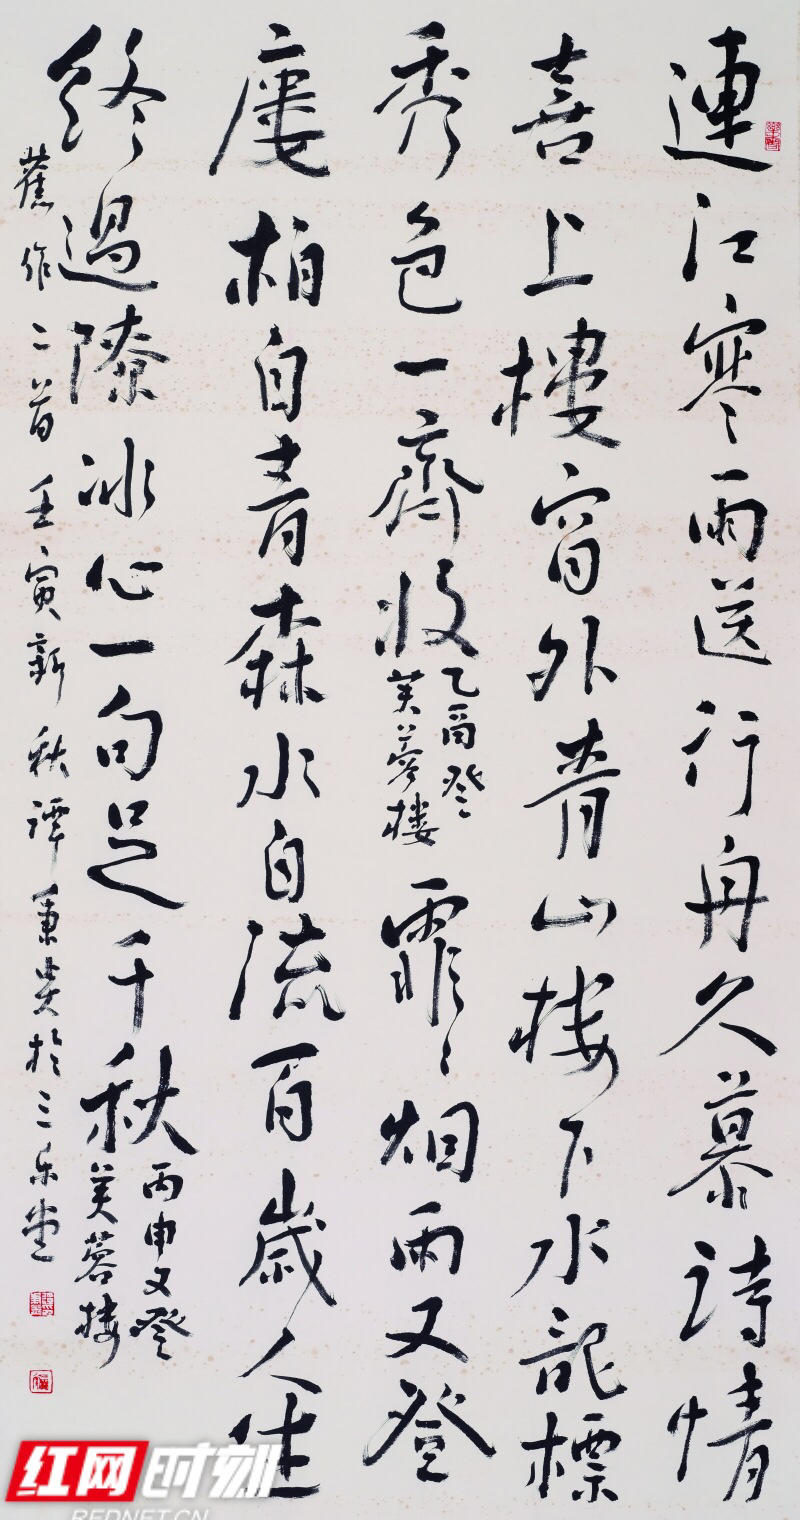 連江寒雨送行舟久慕詩情
喜上樓窗外青山楼下水龍標
秀色一齊收
乙酉登
芙蓉楼
霏々烟雨又登
廔柏自青森水自流百歲人生
終過隙冰心一句足千秋
丙申又登
芙蓉楼
舊作二首壬寅新秋譚秉炎於三乐堂
红网时刻
REDNET.CN